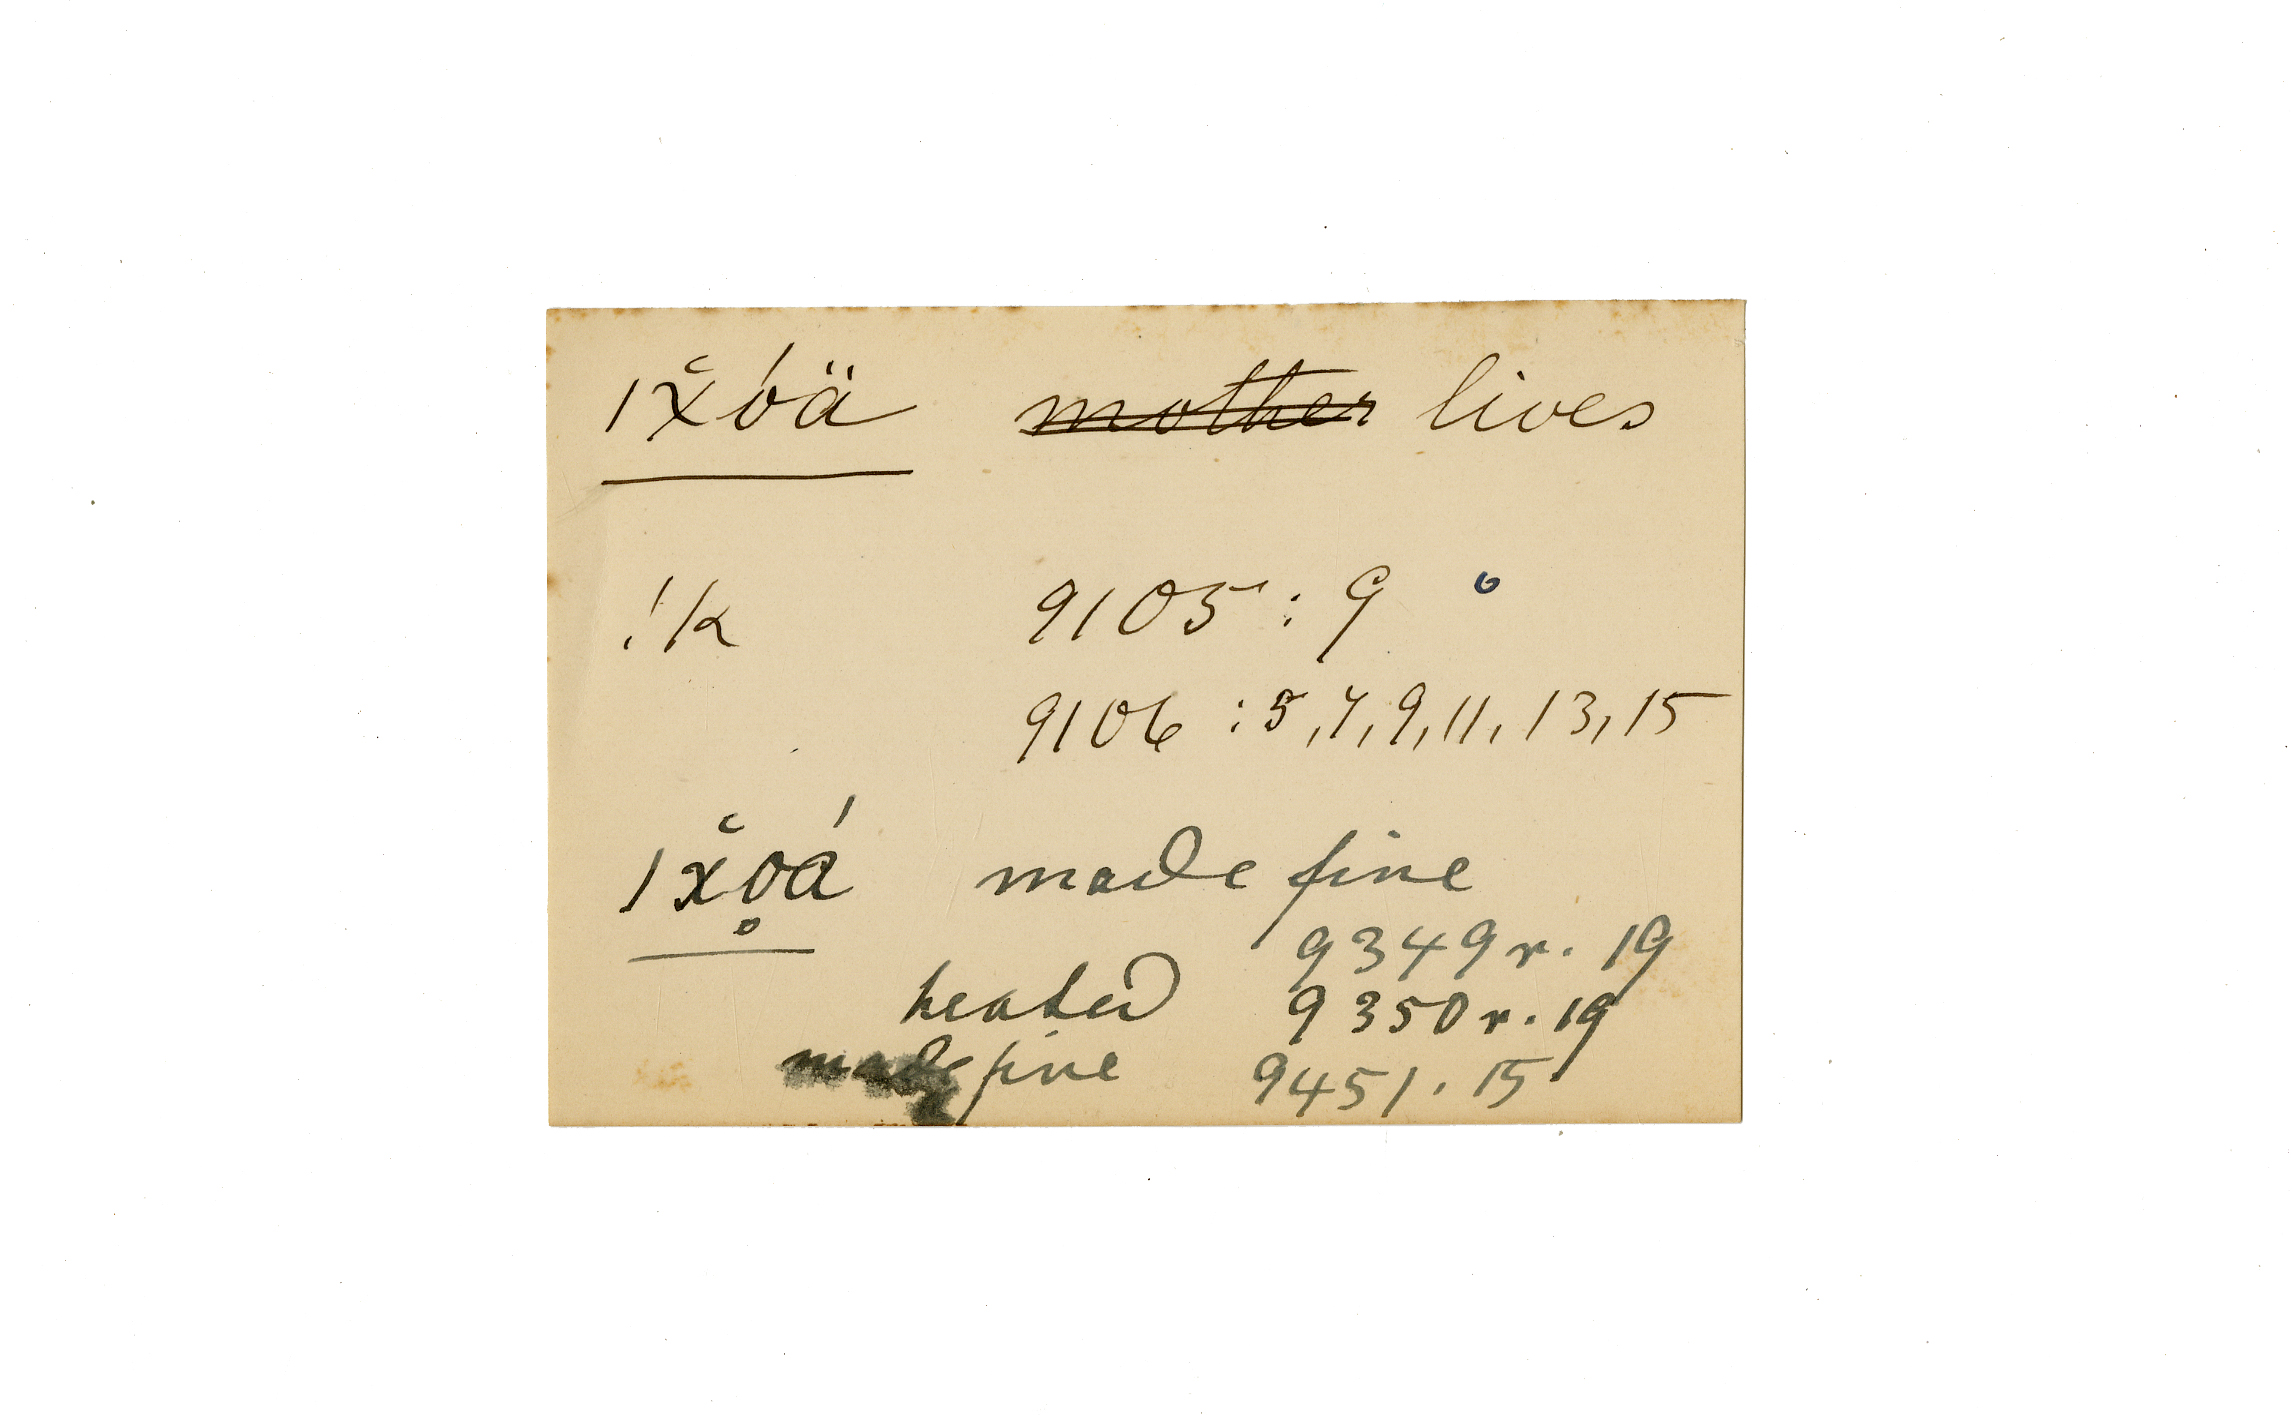 |x̌óä ~~mother~~ lives
!k 9105 : 9
9106 : 5, 7, 9, 11, 13, 15
|x̌o̥á made fine
9349 r. 19
heated 9350 r. 19
made fine 9451. 15